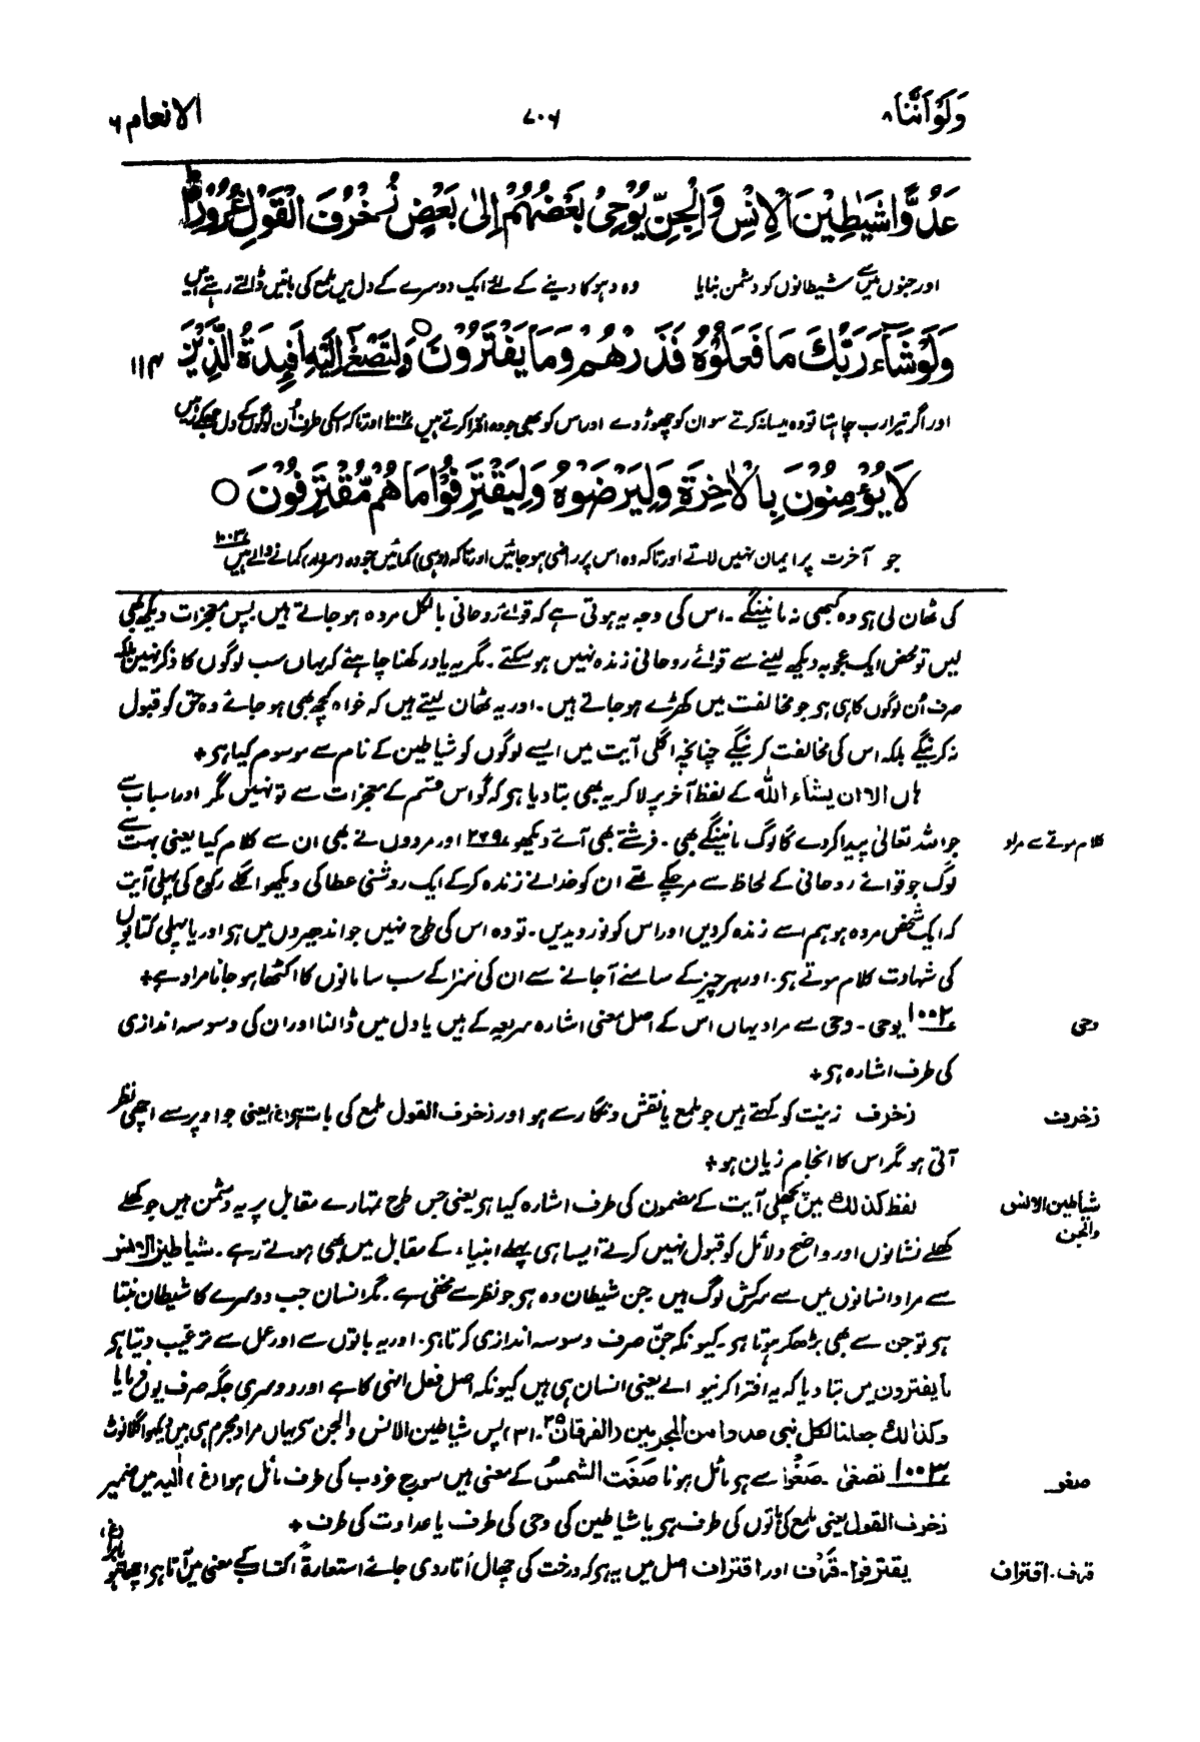 وَلَوْاَنَّنَا ۸
۷۰۶
الانعام ۶
عَدُوًّا شَيٰطِيْنَ الْاِنْسِ وَالْجِنِّ يُوْحِيْ بَعْضُهُمْ اِلٰى بَعْضٍ زُخْرُفَ الْقَوْلِ غُرُوْرًا ط
اور جنوں میں سے شیطانوں کو دشمن بنایا وہ دہوکا دینے کے لئے ایک دوسرے کے دل میں ملمع کی باتیں ڈالتے رہتے ہیں
وَلَوْ شَآءَ رَبُّكَ مَا فَعَلُوْهُ فَذَرْهُمْ وَمَا يَفْتَرُوْنَ ○ وَلِتَصْغٰٓى اِلَيْهِ اَفْـِٕدَةُ الَّذِيْنَ
۱۱۴
اور اگر تیرا رب چاہتا تو وہ ایسا نہ کرتے سو ان کو چھوڑ دے اور اس کو بھی جو وہ افترا کرتے ہیں ۱۰۰۲ اور تاکہ اسکی طرف اُن لوگوں کے دل جھکے رہیں
لَا يُؤْمِنُوْنَ بِالْاٰخِرَةِ وَلِيَرْضَوْهُ وَلِيَقْتَرِفُوْا مَا هُمْ مُّقْتَرِفُوْنَ ○
جو آخرت پر ایمان نہیں لاتے اور تاکہ وہ اس پر راضی ہو جائیں اور تاکہ (وہی) کمائیں جو وہ (سردار) کمانے والے ہیں ۱۰۰۳
کی ٹھان لی ہو وہ کبھی نہ مانینگے ۔ اس کی وجہ یہ ہوتی ہے کہ قوائے روحانی بالکل مردہ ہو جاتے ہیں پس معجزات دیکھ بھی
لیں تو محض ایک عجوبہ دیکھ لینے سے قوائے روحانی زندہ نہیں ہو سکتے ۔ مگر یہ یاد رکھنا چاہئے کہ یہاں سب لوگوں کا ذکر نہیں بلکہ
صرف اُن لوگوں کا ہی ہو جو مخالفت میں کھڑے ہو جاتے ہیں ۔ اور یہ ٹھان لیتے ہیں کہ خواہ کچھ بھی ہو جائے وہ حق کو قبول
نہ کرینگے بلکہ اس کی مخالفت کرینگے چنانچہ اگلی آیت میں ایسے لوگوں کو شیاطین کے نام سے موسوم کیا ہی +
ہاں الا ان یشاء اللہ کے لفظ آخر پر لا کر یہ بھی بتا دیا ہو کہ گو اس قسم کے معجزات سے تو نہیں مگر اور اسباب سے
جو اللہ تعالیٰ پیدا کردے گا لوگ مانینگے بھی ۔ فرشتے بھی آئے دیکھو ۲۶۹ اور مردوں نے بھی ان سے کلام کیا یعنی بہت سے
کلام موتے سے مراد
لوگ جو قوائے روحانی کے لحاظ سے مر چکے تھے ان کو خدا نے زندہ کرکے ایک روشنی عطا کی دیکھو اگلے رکوع کی پہلی آیت
کہ ایک شخص مردہ ہو ہم اسے زندہ کردیں اور اس کو نور دیدیں ۔ تو وہ اس کی طرح نہیں جو اندھیروں میں ہو اور یا پہلی کتابوں
کی شہادت کلام موتے ہی ۔ اور ہر چیز کے سامنے آجانے سے ان کی سزا کے سب سامانوں کا اکٹھا ہو جانا مراد ہے +
۱۰۰۲ یوحی ۔ وحی سے مراد یہاں اس کے اصل معنی اشارہ سریعہ کے ہیں یا دل میں ڈالنا اور ان کی وسوسہ اندازی
وحی
کی طرف اشارہ ہی +
زخرف زینت کو کہتے ہیں جو ملمع یا نقش ونگار سے ہو اور زخرف القول ملمع کی بات ہو (غ) یعنی جو اوپر سے اچھی نظر
زخرف
آتی ہو مگر اس کا انجام زیان ہو +
لفظ کذلک میں پچھلی آیت کے مضمون کی طرف اشارہ کیا ہو یعنی جس طرح تمہارے مقابل پر یہ دشمن ہیں جو کھلے
شیاطین الانس والجن
کھلے نشانوں اور واضح دلائل کو قبول نہیں کرتے ایسا ہی پہلے انبیاء کے مقابل میں بھی ہوتے رہے ۔ شیاطین الانس
سے مراد انسانوں میں سے سرکش لوگ ہیں جن شیطان وہ ہو جو نظر سے مخفی ہے ۔ مگر انسان جب دوسرے کا شیطان بنتا
ہو تو جن سے بھی بڑھکر ہوتا ہو ۔ کیونکہ جنّ صرف وسوسہ اندازی کرتا ہو ۔ اور یہ باتوں سے اور عمل سے ترغیب دیتا ہو
ما یفترون میں بتا دیا کہ یہ افترا کرنیوالے یعنی انسان ہی ہیں کیونکہ اصل فعل انہی کا ہے اور دوسری جگہ صرف یوں فرمایا
وکذالک جعلنا لکل نبی عدوا من المجرمین (الفرقان ۲۵ ۔ ۳۱) پس شیاطین الانس والجن سی یہاں مراد مجرم ہی ہیں دیکھو اگلا نوٹ
۱۰۰۳ تصغیٰ ۔ صَغْوٌ سے ہو مائل ہونا صَغَتِ الشمسُ کے معنی ہیں سورج غروب کی طرف مائل ہوا (غ) الیہ میں ضمیر
صغو
زخرف القول یعنی ملمع کی باتوں کی طرف ہی یا شیاطین کی وحی کی طرف یا عداوت کی طرف +
یقترفوا ۔ قَرْف اور اقتراف اصل میں یہ ہو کہ درخت کی چھال اُتار دی جائے استعارۃً اکتساب کے معنی میں آتا ہو اچھا ہو یا برا (غ)
قرف ۔ اقتراف